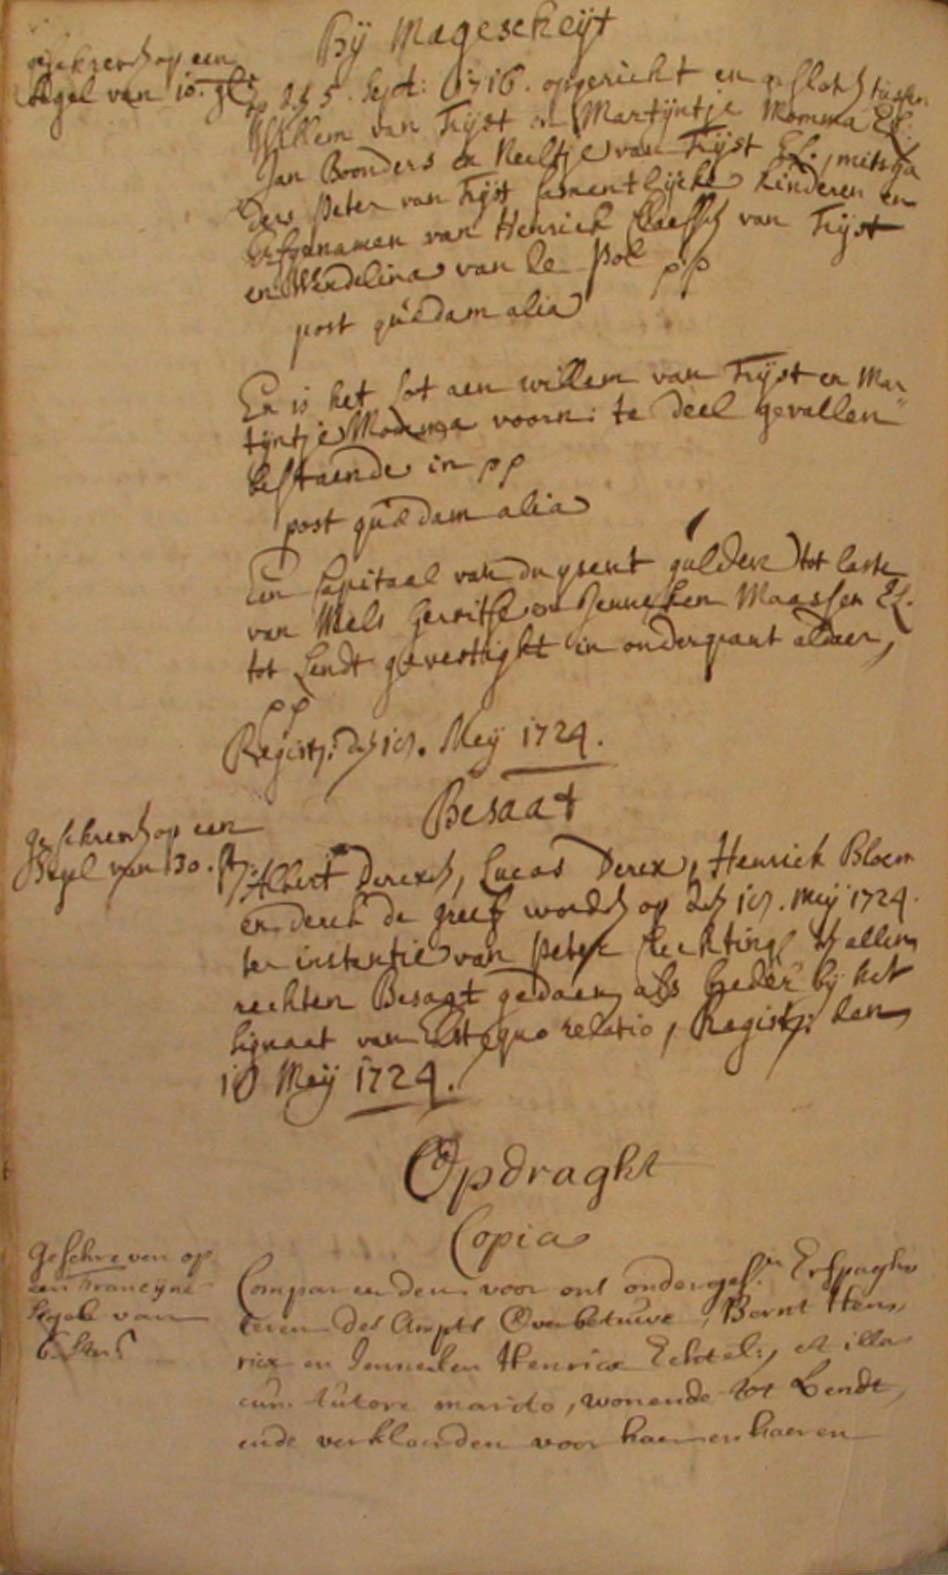 Bij Magescheijt
geschreven op een
Segel van 10. gl.
op den 5. Sept: 1716. opgericht en gesloten tussen
Willem van Trijst en Martijntje Momma El.
Jan Boonders en Neeltje van Trijst El., mitsga
ders Peter van Trijst samentlijcke kinderen en
Erfgenamen van Henrick Claessen van Trijst
en Wendelina van de Pol pp
post quaedam alia
En is het lot aen willem van Trijst en Mar
tijntje Momma voorn: te deel gevallen
bestaende in pp
post quaedam alia
Een Capitael van duysent gulden tot laste
van Wels Gerritse en Jenneken Maassen El.
tot Lendt gevestight in onderpant aldaer,
pp
Registr. den Meij 1724.
Besaat
geschreven op een
Segel van 30. st.
Albert Dercksen, Lucas Dercx, Henrick Bloem
en derck de greeff worden op den Meij 1724.
ter instantie van Peter ten allen
rechten Besaat gedaen als breder bij het
signaat van Elst quo relatio, Registr: den
Meij 1724.
Opdraght
Copia
Geschreven op
een Francijne
Segele van
6. stuv.
Compareerden voor ons ondergesn. Erfpaghte
leren des Ampts Overbetuwe, Bernt Hen
ricx en Jenneken Henricx Echtel:, et illa
cum tutore marito, wonende tot Bendt,
ende verklaerden voor haer en haeren